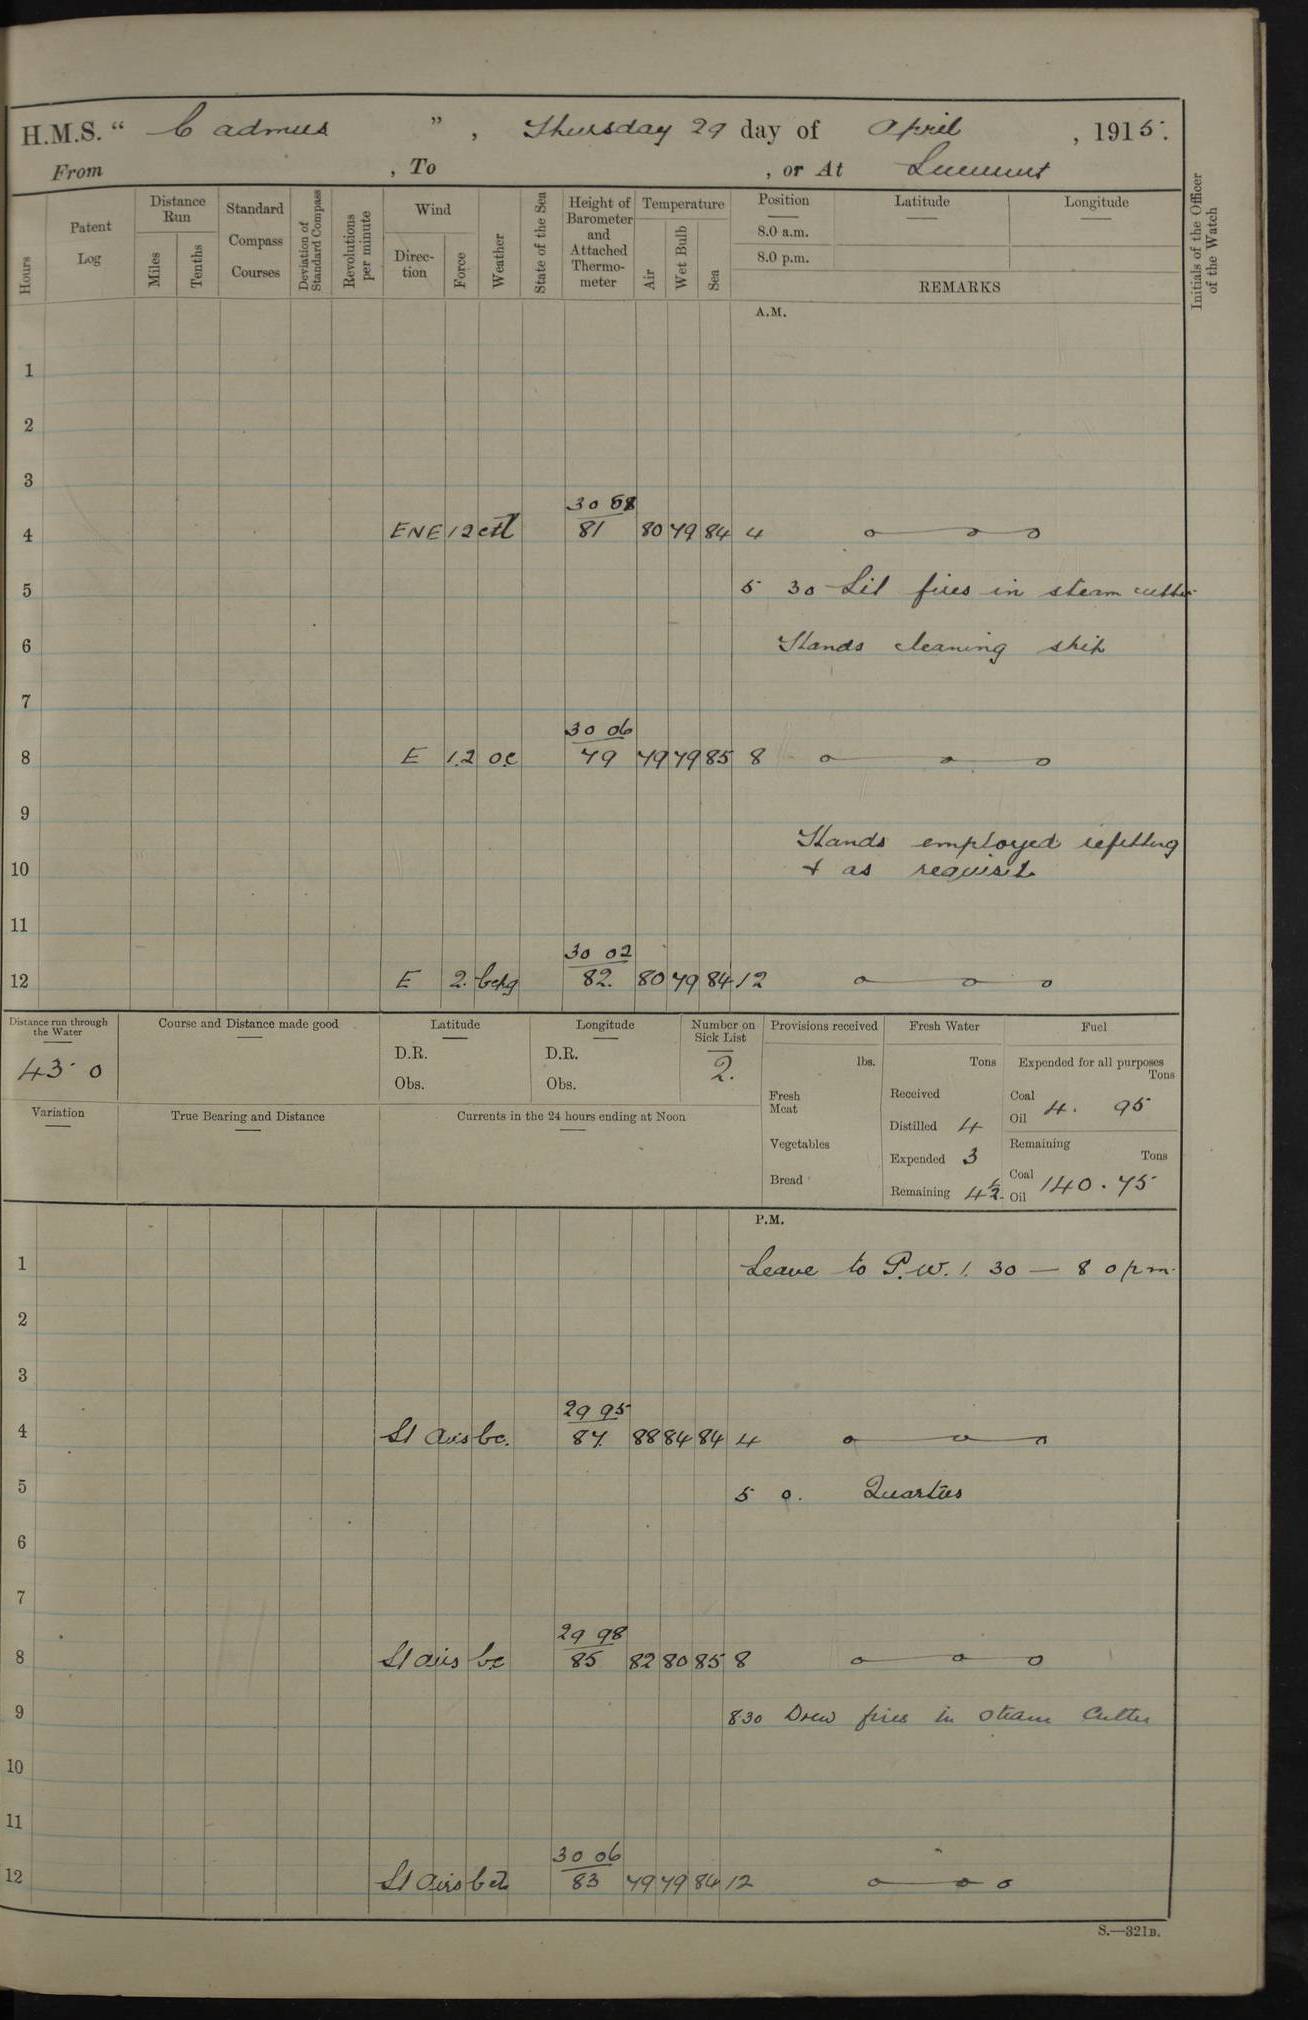 H.M.S. “ Cadmus ” , Thursday 29 day of April , 1915.
From , To , or At Lumut
Hours
Patent Log
Distance Run
Miles
Tenths
Standard Compass Courses
Deviation of Standard Compass
Revolutions per minute
Wind
Direction
Force
Weather
State of the Sea
Height of Barometer and Attached Thermometer
Temperature
Air
Wet Bulb
Sea
Position
8.0 a.m.
8.0 p.m.
Latitude
Longitude
REMARKS
Initials of the Officer of the Watch
A.M.
1
2
3
30
4 ENE 1 2 81 80 79 84 4
5 5 30 Lit fires in steam cutter
6 Hands cleaning ship
7
30 06
8 E 1.2 oc 79 79 79 85 8
9
Hands employed refitting
10 & as requisite
11
30 02
12 E 2. 82. 80 79 84 12
Distance run through the Water
43 0
Course and Distance made good
Latitude
D.R.
Obs.
Longitude
D.R.
Obs.
Number on Sick List
2.
Provisions received
lbs.
Fresh Meat
Vegetables
Bread
Fresh Water
Tons
Received
Distilled 4
Expended 3
Remaining
Fuel
Expended for all purposes
Tons
Coal
Oil 4. 95
Remaining
Tons
Coal
Oil 140.75
Variation
True Bearing and Distance
Currents in the 24 hours ending at Noon
P.M.
1 Leave to P.W. 1. 30 — 8 0 pm.
2
3
29 95
4 Lt airs bc. 87. 88 84 84 4
5 5 0. Quarters
6
7
29 98
8 Lt airs bc 85 82 80 85 8
9 8 30 Drew fires in steam Cutter
10
11
30 06
12 Lt airs 83 79 79 84 12
S.—321B.